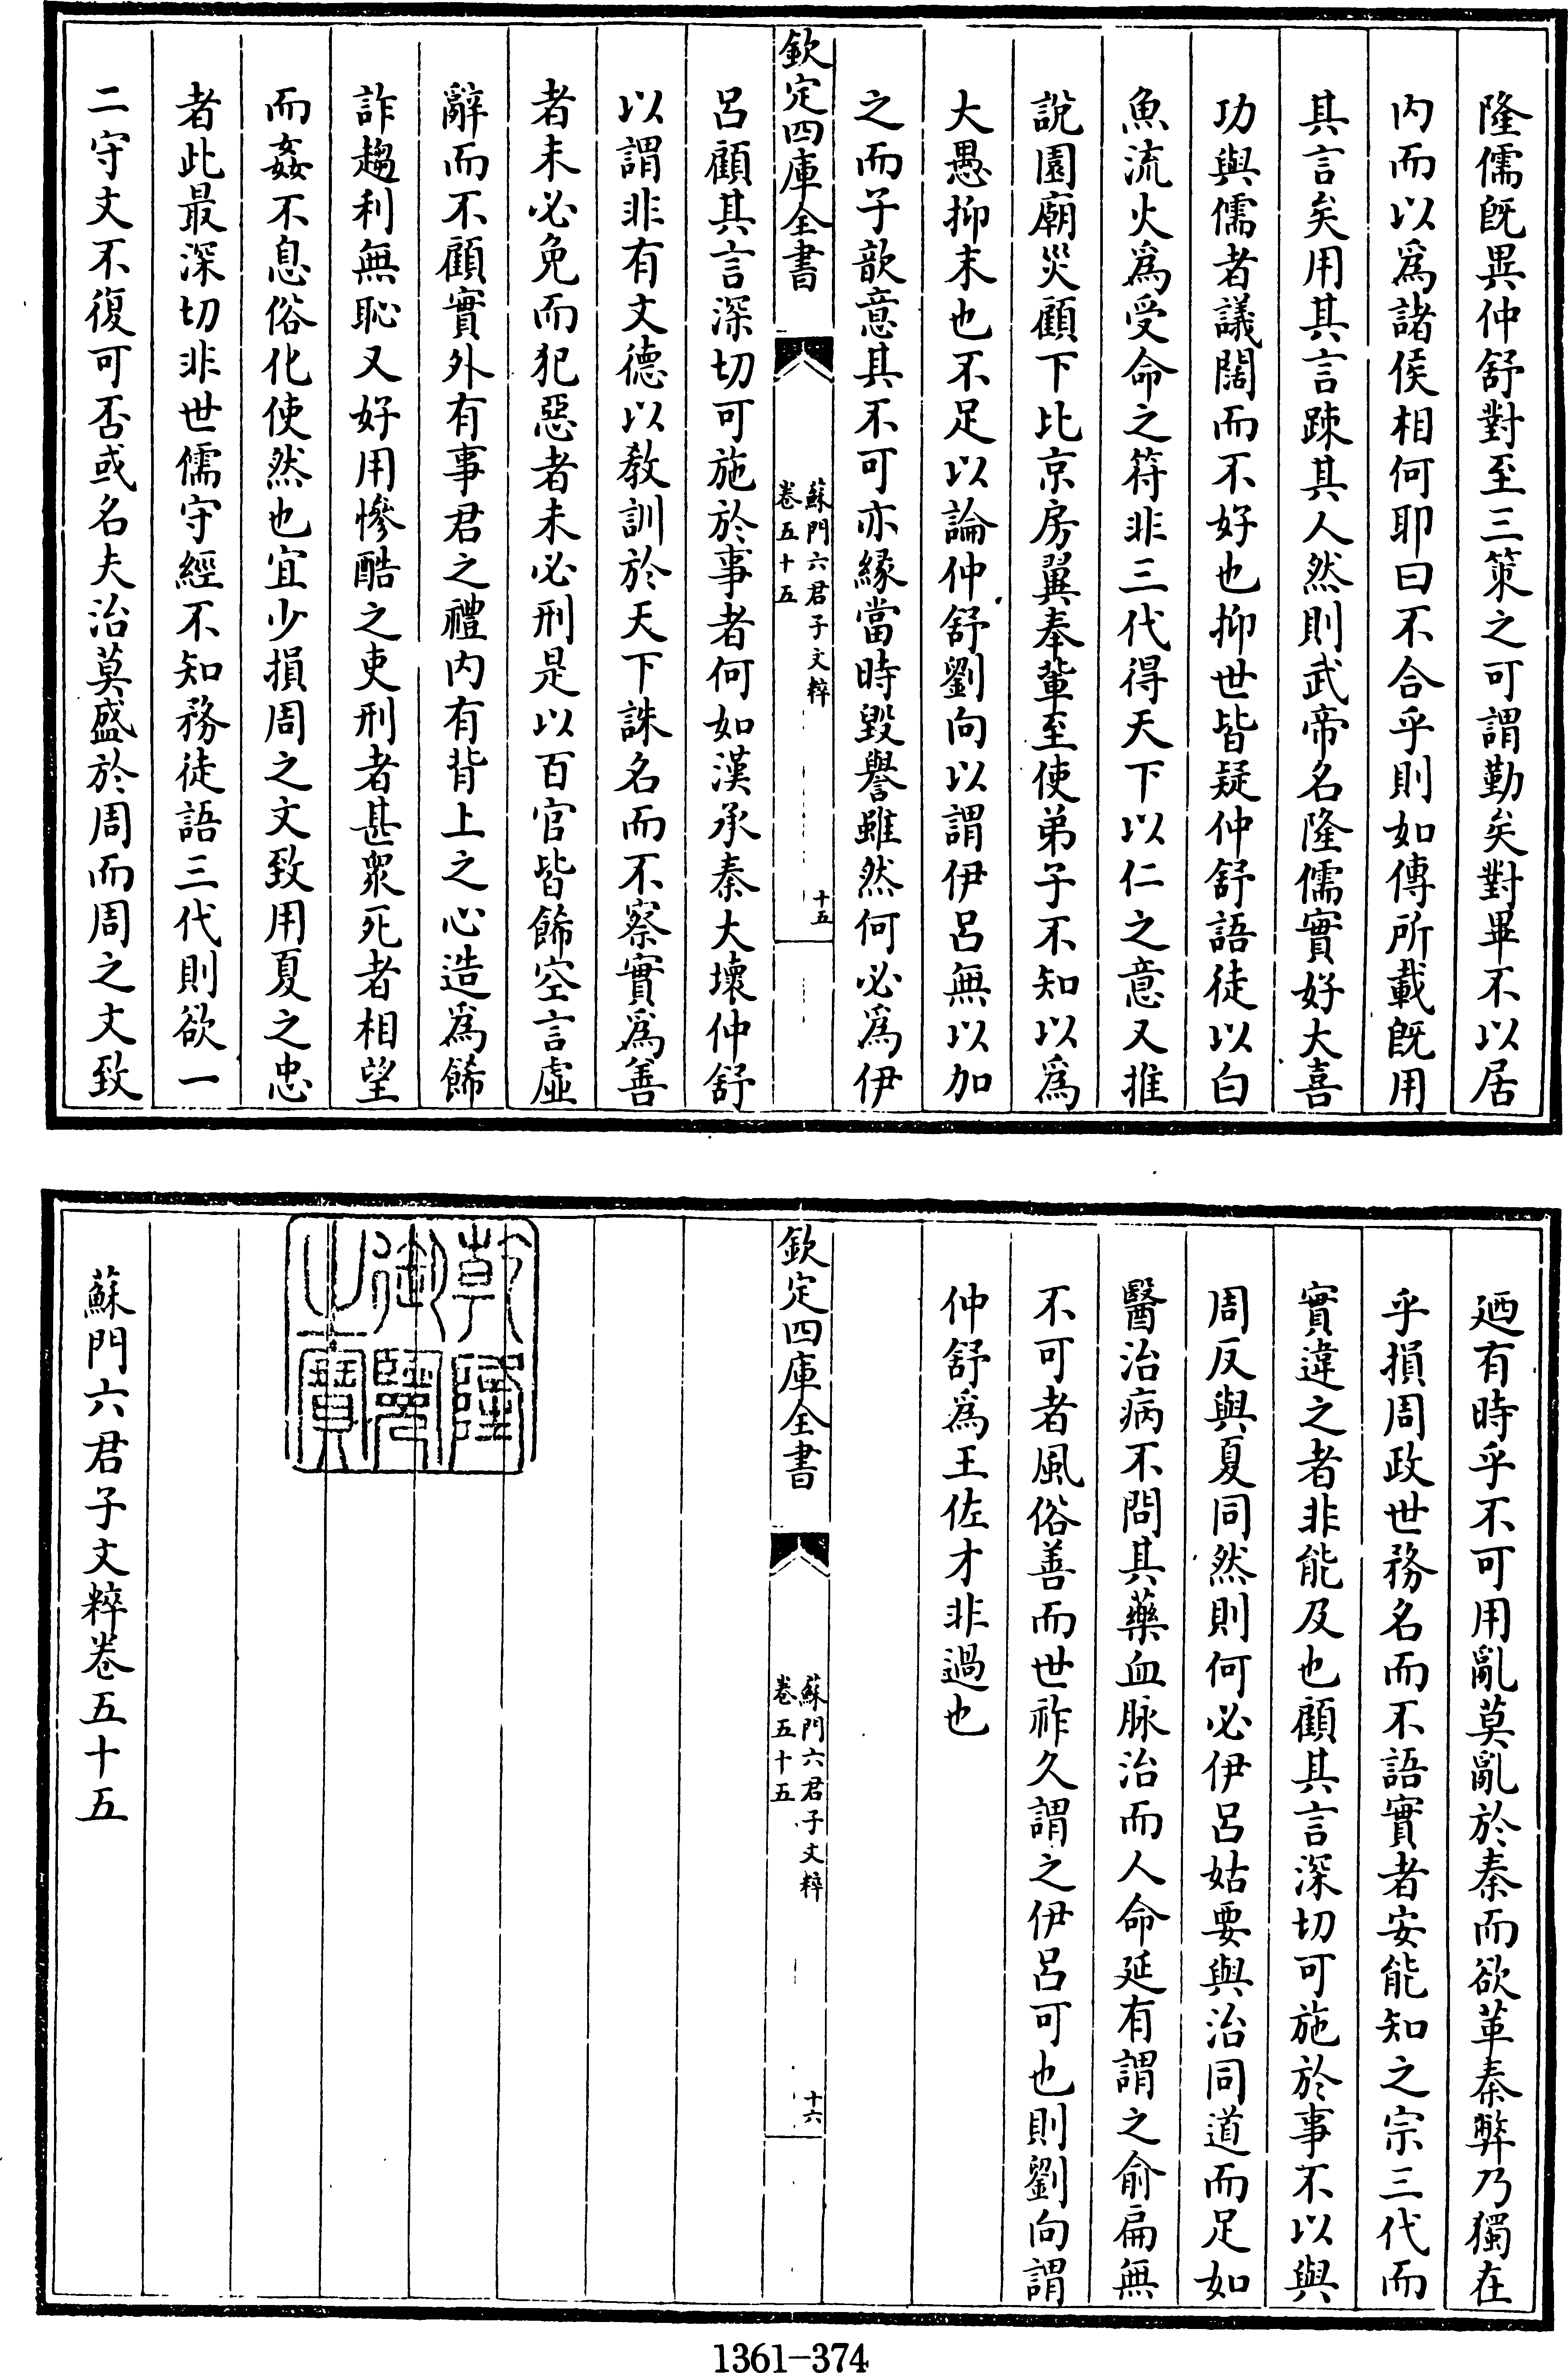 隆儒旣異仲舒對至三策之可謂勤矣對畢不以居
内而以爲諸侯相何耶曰不合乎則如傳所載旣用
其言矣用其言踈其人然則武帝名隆儒實好大喜
功與儒者議闊而不好也抑世皆疑仲舒語徒以白
魚流火爲受命之符非三代得天下以仁之意又推
說園廟災顧下比京房翼奉輩至使弟子不知以爲
大愚抑末也不足以論仲舒劉向以謂伊吕無以加
之而子歆意其不可亦縁當時毀譽雖然何必爲伊
欽定四庫全書
蘇門六君子文粹
卷五十五
十五
吕顧其言深切可施於事者何如漢承秦大壞仲舒
以謂非有文德以敎訓於天下誅名而不察實爲善
者未必免而犯惡者未必刑是以百官皆餙空言虚
辭而不顧實外有事君之禮内有背上之心造爲餙
詐趨利無恥又好用慘酷之吏刑者甚衆死者相望
而姦不息俗化使然也宜少損周之文致用夏之忠
者此最深切非世儒守經不知務徒語三代則欲一
二守文不復可否或名夫治莫盛於周而周之文致
廼有時乎不可用亂莫亂於秦而欲革秦弊乃獨在
乎損周政世務名而不語實者安能知之宗三代而
實違之者非能及也顧其言深切可施於事不以與
周反與夏同然則何必伊吕姑要與治同道而足如
醫治病不問其藥血脉治而人命延有謂之俞扁無
不可者風俗善而世祚久謂之伊吕可也則劉向謂
仲舒爲王佐才非過也
欽定四庫全書
蘇門六君子文粹
卷五十五
十六
乾隆
御覽
之寶
蘇門六君子文粹卷五十五
1361-374